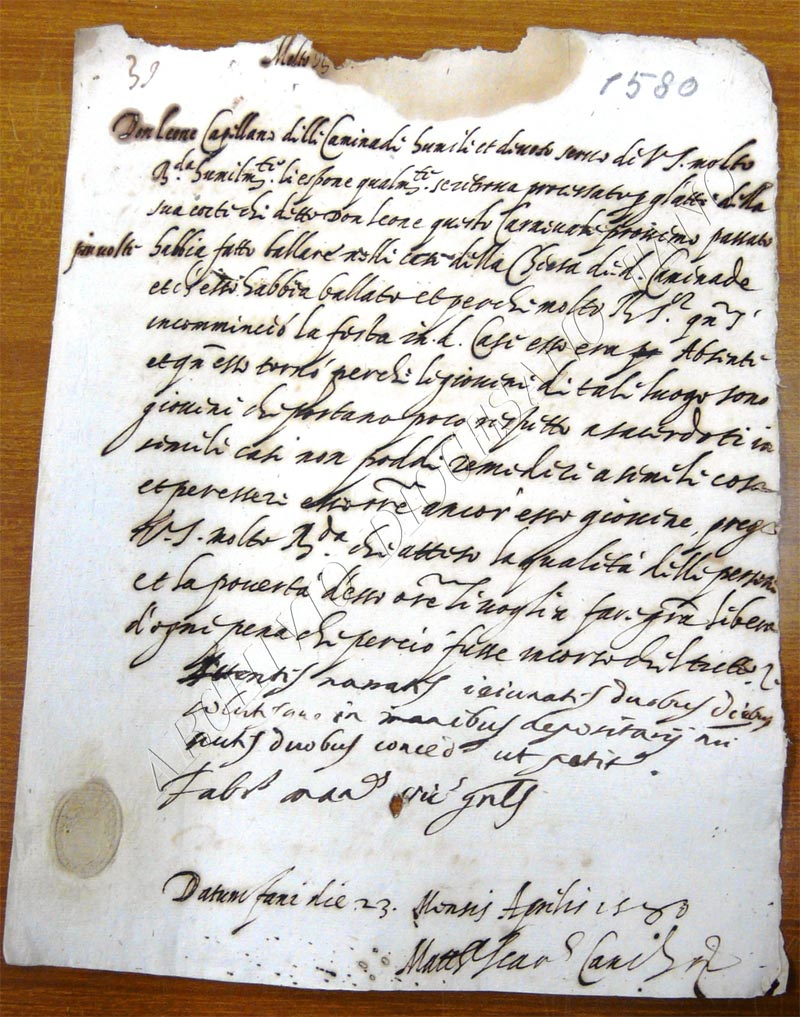 39
Molto
1580
Don leone Capellano delli Caminadi humili et devoto servo di V. S. molto
R.da humilm.te li espone qualm.te si ritrova processato p gl'atti della
sua corte che ditto Don leone questo Carnevale prossimo passato
piu volte habbia fatto ballare nelli case della Chiesa di d. Caminade
et ch'esso habbia ballato et perche molto R. S.r qn
incomminciò la festa in d. Case esso era Absente
et qn esso tornò perche li giovini di tali luogo sono
giovini che portano poco rispetto a sacerdoti in
simili casi non poddi remediri a simili cosa
et per esseri ancor esso giovine, prega
V. S. molto R.da che atteso la qualità delli persone
et la povertà d'esso ore li voglia fare gra libera
d'ogni pena che perciò fusse incorso
Attentis narratis ieiunatis duobus diebus
in manibus depositarij
scutis duobus conced. ut petit.
Fab. vic. gnlis
Datum fani die 23. Mensis Aprilis 1580
Matt.
ARCHIVIO DIOCESANO FANO